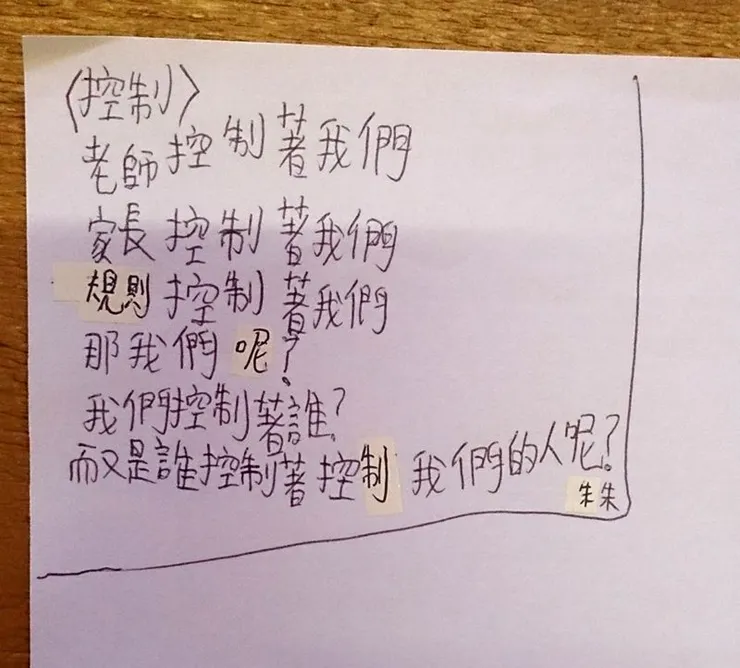 〈控制〉
老師控制著我們
家長控制著我們
規則控制著我們
那我們呢？
我們控制著誰？
而又是誰控制著控制我們的人呢？
朱朱